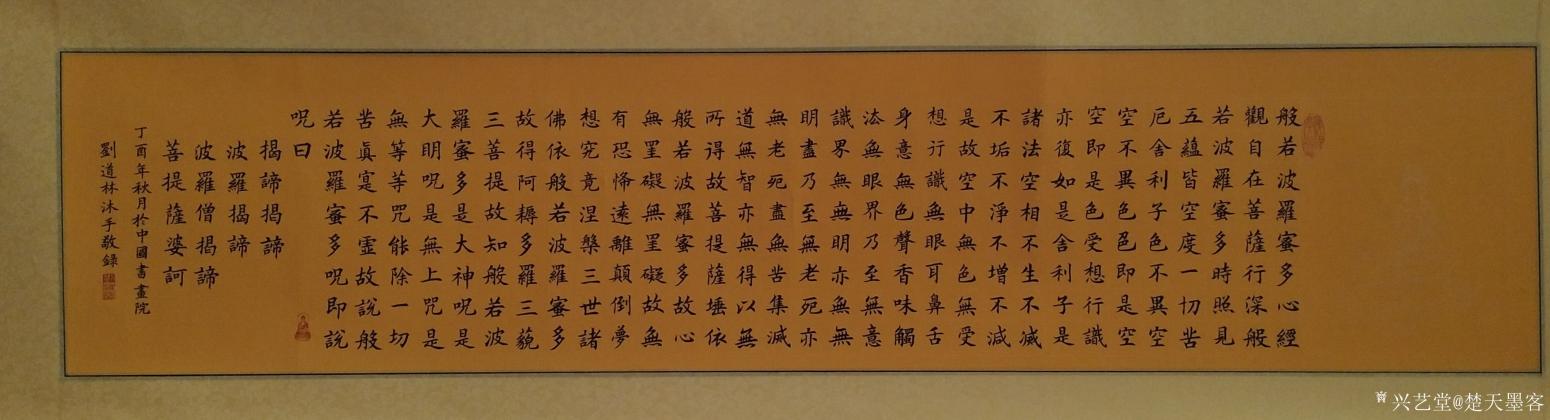 般若波羅蜜多心經
觀自在菩薩行深般
若波羅蜜多時照見
五蘊皆空度一切苦
厄舍利子色不異空
空不異色色即是空
空即是色受想行識
亦復如是舍利子是
諸法空相不生不滅
不垢不淨不增不減
是故空中無色無受
想行識無眼耳鼻舌
身意無色聲香味觸
法無眼界乃至無意
識界無無明亦無無
明盡乃至無老死亦
無老死盡無苦集滅
道無智亦無得以無
所得故菩提薩埵依
般若波羅蜜多故心
無罣礙無罣礙故無
有恐怖遠離顛倒夢
想究竟涅槃三世諸
佛依般若波羅蜜多
故得阿耨多羅三藐
三菩提故知般若波
羅蜜多是大神呪是
大明呪是無上咒是
無等等咒能除一切
苦真寔不虛故說般
若波羅蜜多呪即說
呪曰
揭諦揭諦
波羅揭諦
波羅僧揭諦
菩提薩婆訶
丁酉年秋月於中國書畫院
劉道林沐手敬錄
兴艺堂@楚天墨客